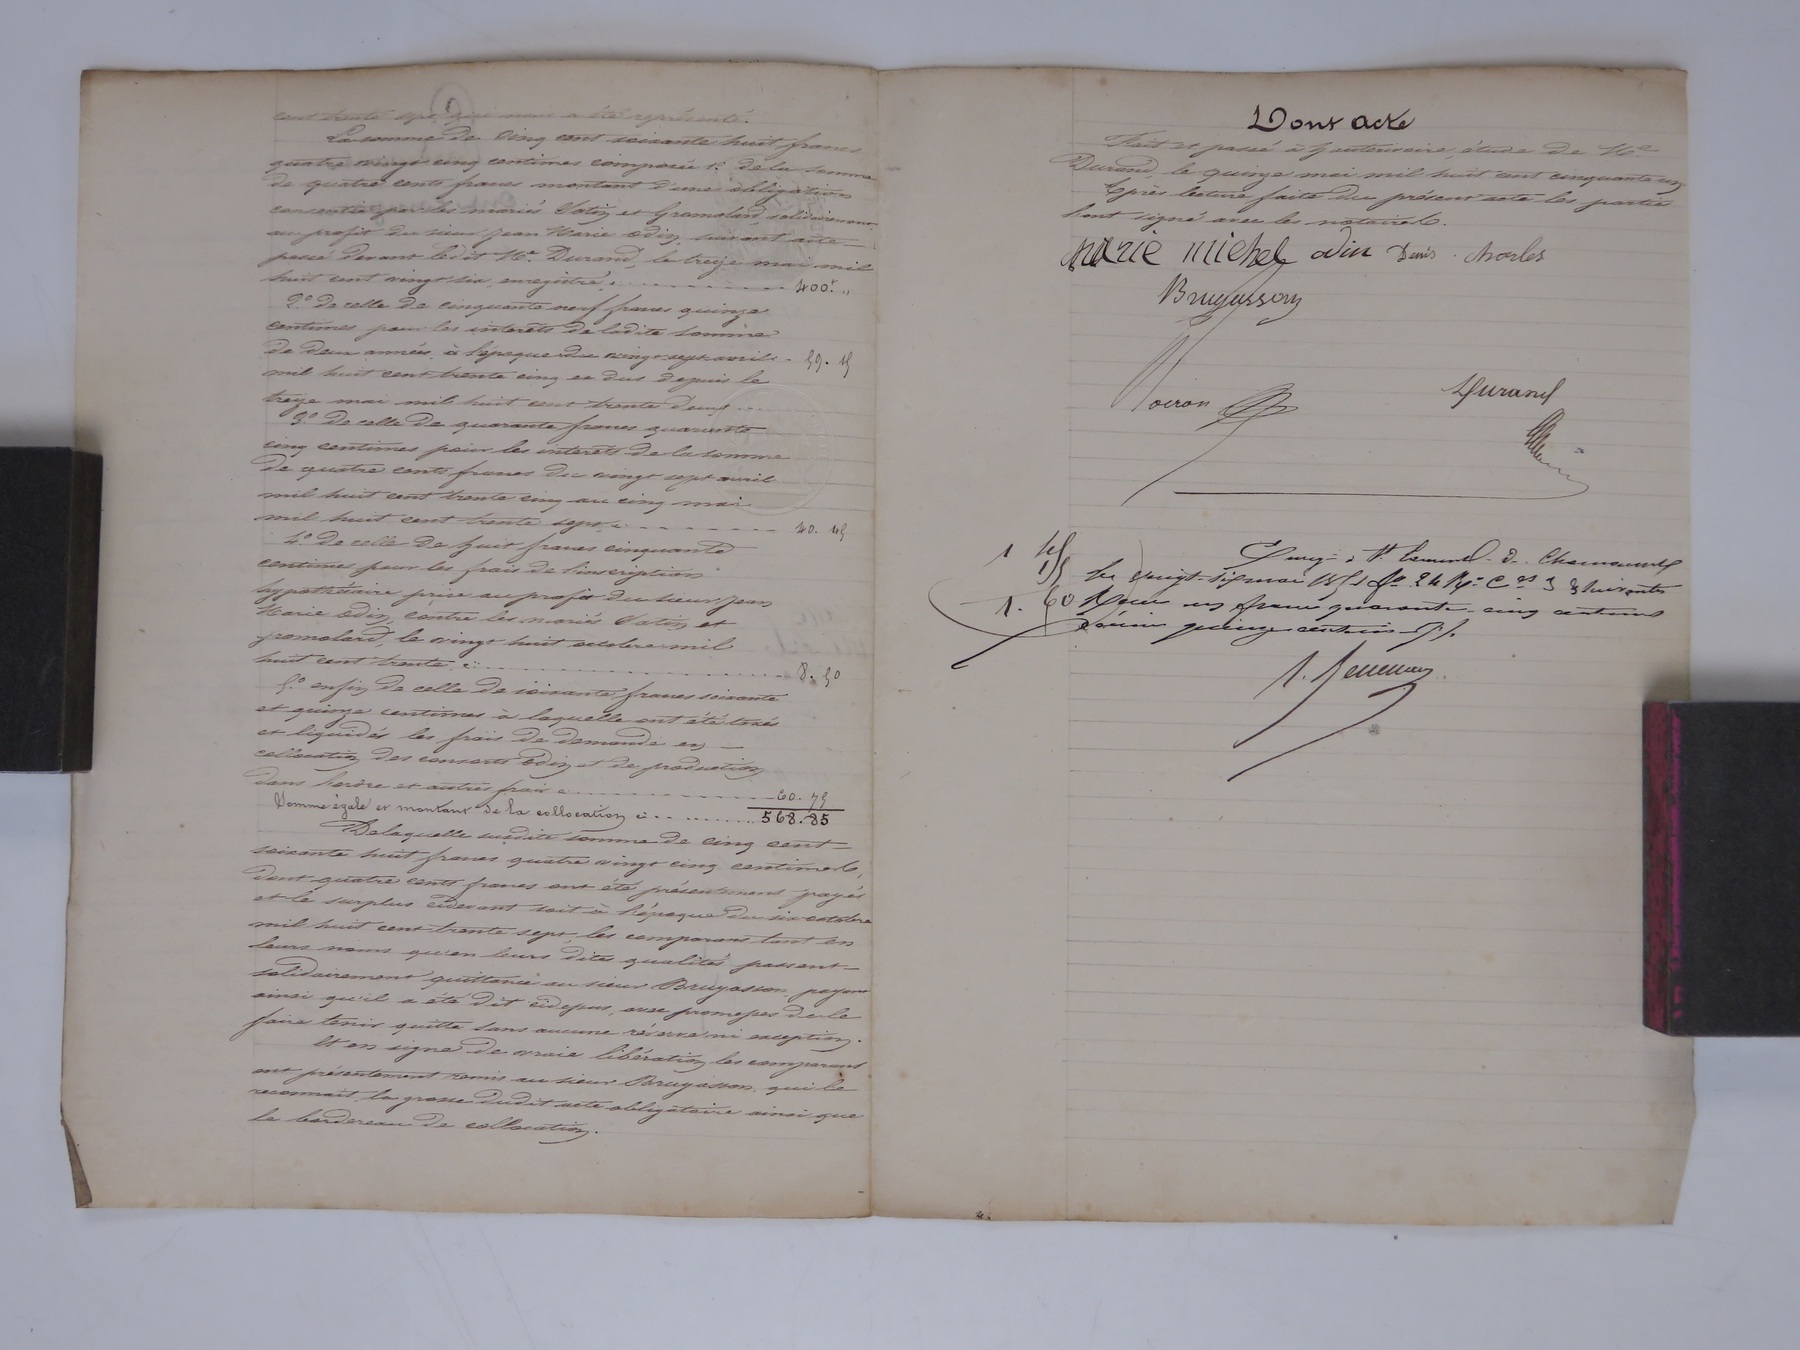 cent trente sept, qui nous a été représenté.
La somme de cinq cent soixante huit francs
quatre vingt cinq centimes composée 1.° de la somme
de quatre cents francs montant d'une obligation
consentie par les mariés Vatin et Gromolard, solidairement
au profit du sieur Jean Marie Odin, suivant acte
passé devant ledit Me. Durand, le treize mai mil
huit cent vingt six, enregistré, ci 400f. "
2.° de celle de cinquante neuf francs quinze
centimes pour les intérets de ladite somme
de deux années, à l'époque du vingt sept avril 59. 15
mil huit cent trente cinq et dus depuis le
treize mai mil huit cent trente deux
3.° de celle de quarante francs quarante
cinq centimes pour les intérets de la somme
de quatre cents francs du vingt sept avril
mil huit cent trente cinq au cinq mai
mil huit cent trente sept, ci 40. 45
4.° de celle de huit francs cinquante
centimes pour les frais de l'inscription
hypothécaire prise au profit du sieur Jean
Marie Odin, contre les mariés Vatin et
gromolard, le vingt huit octobre mil
huit cent trente ci 8. 50
5.° enfin de celle de soixante francs soixante
et quinze centimes à laquelle ont été taxés
et liquidés les frais de demande en
collocation des consorts Odin et de production
dans l'ordre et autres frais ci 60. 75
Somme égale et montant de la collocation ci 568. 85
De laquelle susdite somme de cinq cent
soixante huit francs quatre vingt cinq centimes,
dont quatre cents francs ont été présentement payés
et le surplus cidevant soit à l'époque du six octobre
mil huit cent trente sept, les comparans tant en
leurs noms qu'en leurs dites qualités passent
solidairement quittance au sieur Brugasson, payant
ainsi qu'il a été dit cidessus, avec promesses de le
faire tenir quitte sans aucune réserve ni exception.
Et en signe de vraie libération les comparans
ont présentement remis au sieur Brugasson, qui le
reconnait, la grosse dudit acte obligatoire ainsi que
le bordereau de collocation.
Dont acte
Fait et passé à hauterivoire, étude de Me.
Durand, le quinze mai mil huit cent cinquante un
Après lecture faite du présent acte les parties
ont signé avec les notaires.
Marie Michel odin Denis Charles
Brugasson
Noiron Durand
1 45
15
1. 60
le vingt six mai 1851 fo. 24 Ro. Ces 3 & suivantes
Reçu un franc quarante cinq centimes
décime quinze centimes